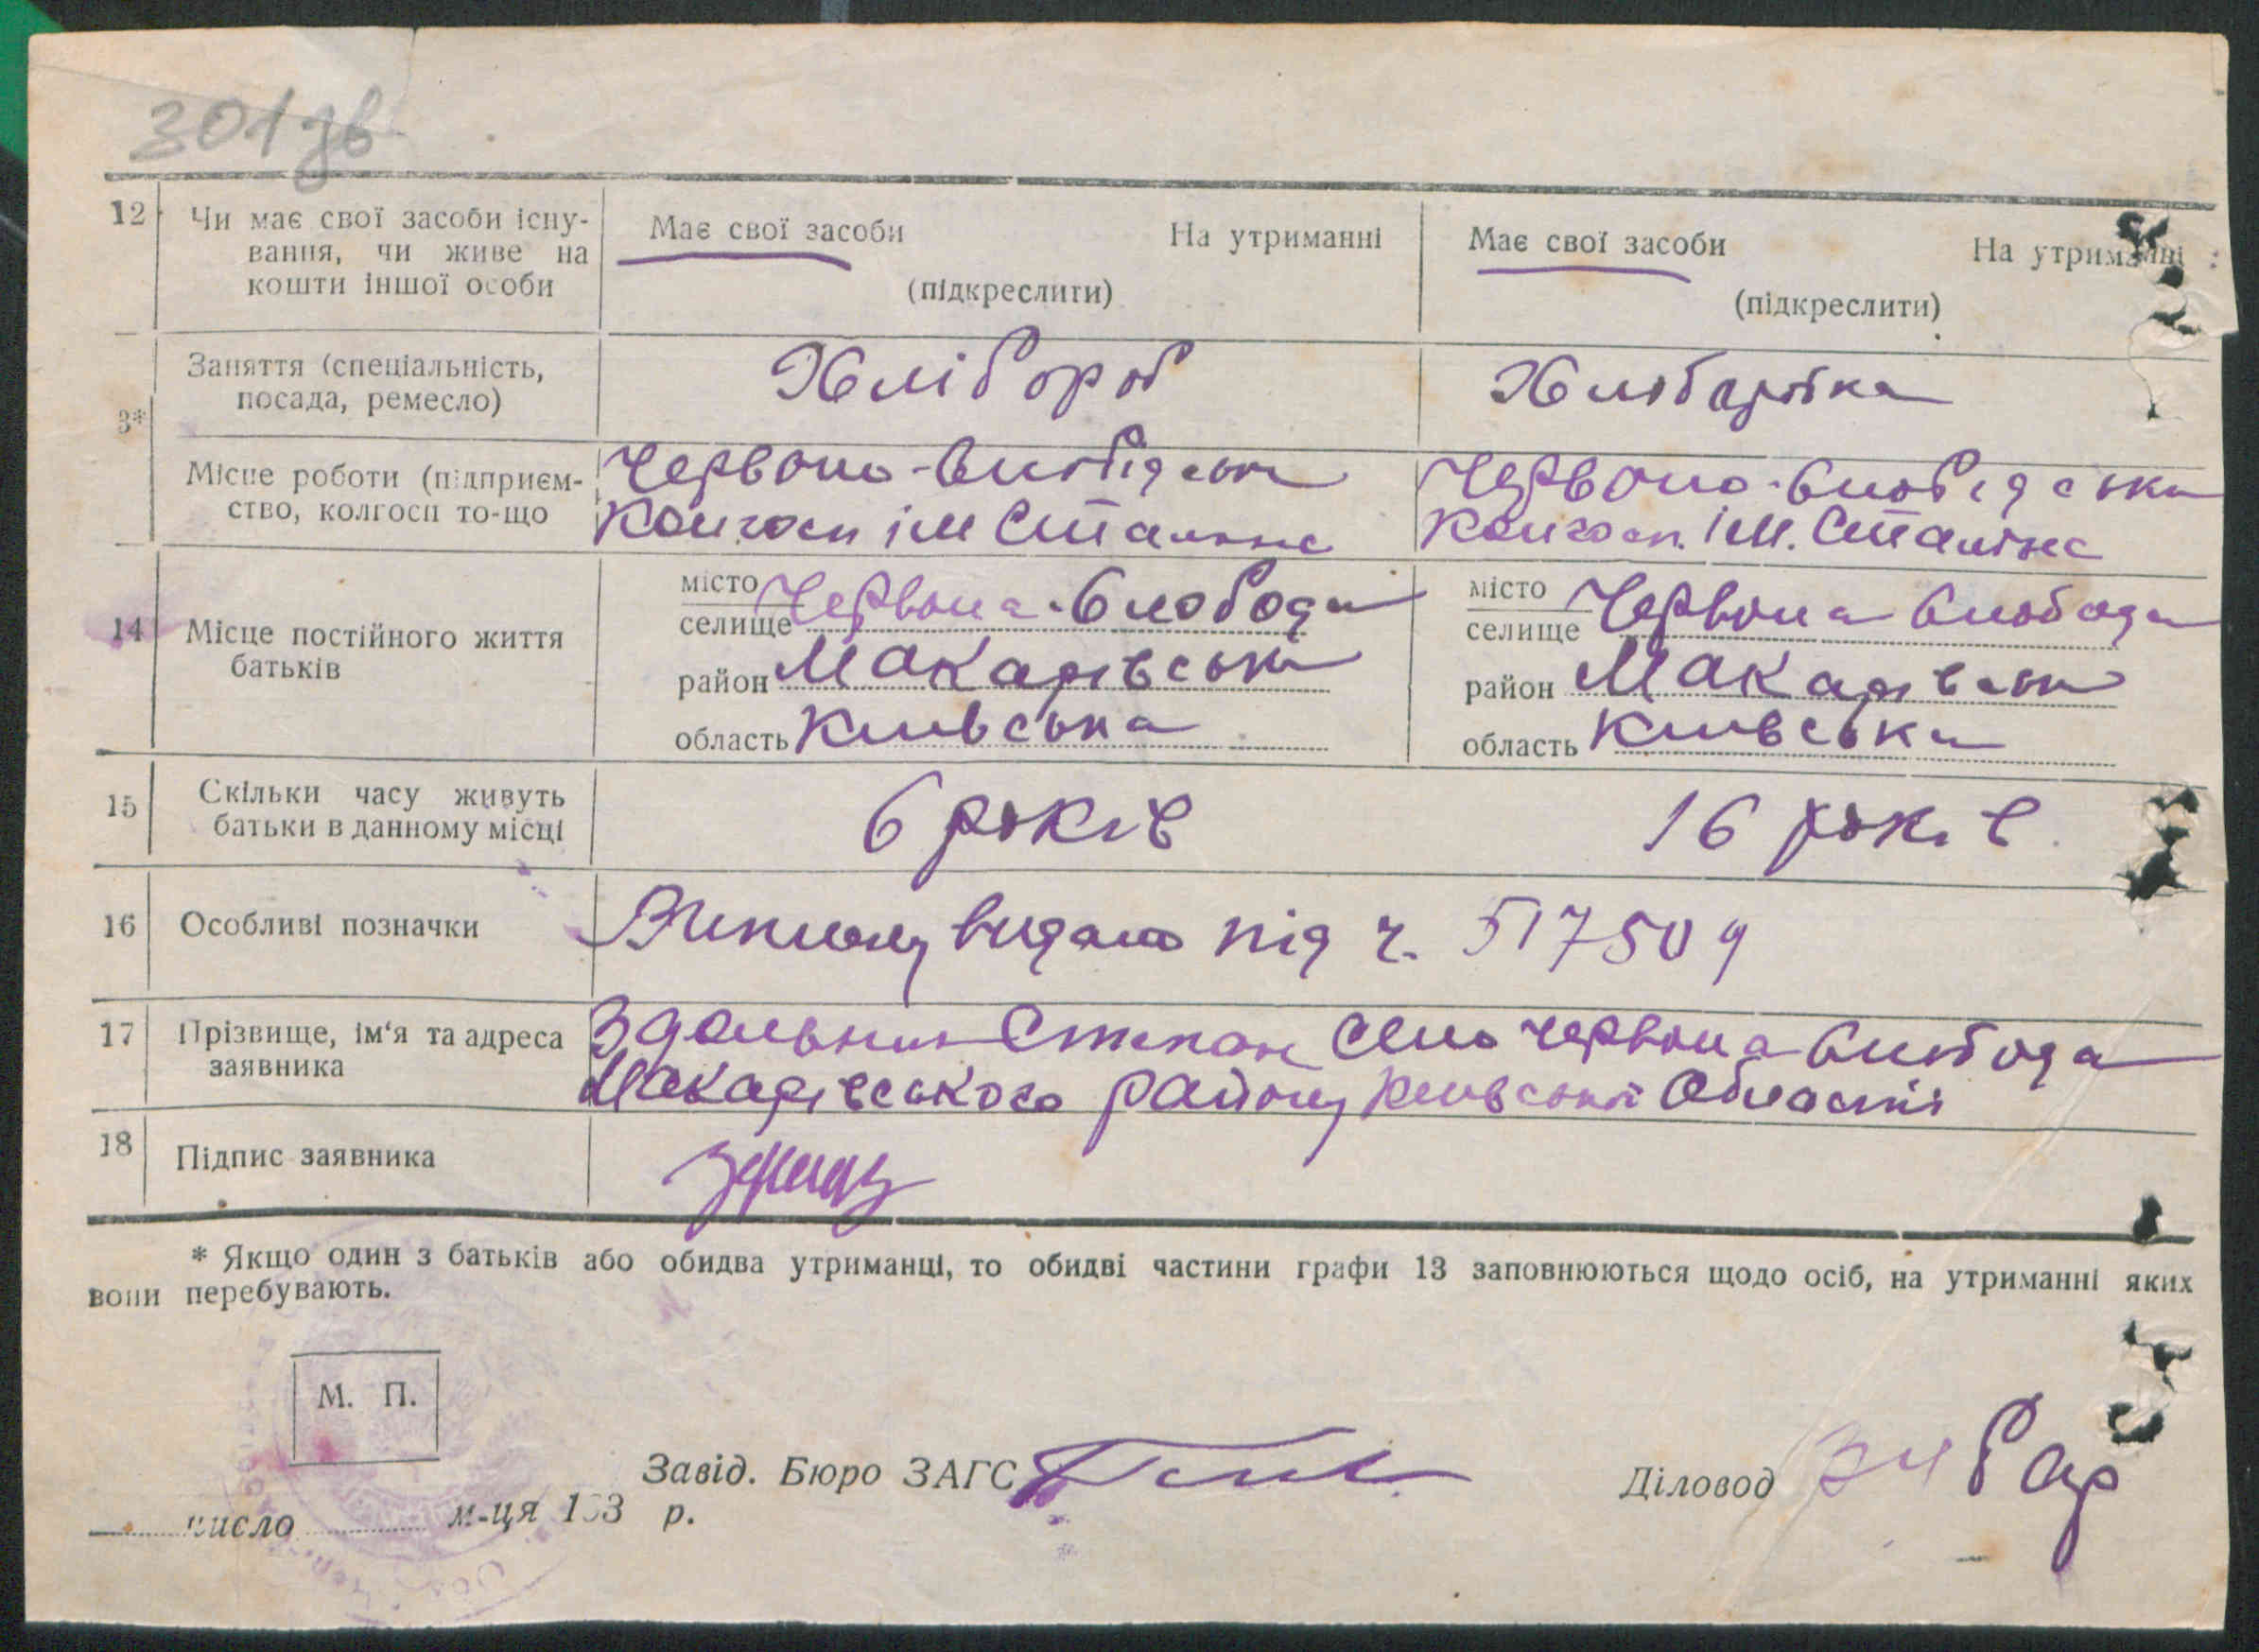 301 зв
12 Чи має свої засоби існу- Має свої засоби На утриманні Має свої засоби На утриманні
вання, чи живе на
кошти іншої особи (підкреслити) (підкреслити)
Заняття (спеціальність, Хлібороб Хліборобка
посада, ремесло)
3*
Місце роботи (підприєм- Червоно-Слобідськи Червоно-Слобідськи
ство, колгосп то-що Колгосп ім Сталіна Колгосп. ім. Сталіна
місто Червона-Слобода місто Червона Слобода
селище селище
14 Місце постійного життя
батьків
район Макарівськи район Макарівськи
область Київська область Київська
15 Скільки часу живуть 6 років 16 років
батьки в данному місці
16 Особливі позначки Виписку видано під ч. 517509
17 Прізвище, ім'я та адреса Степан Село Червона Слобода
заявника Макарівського району Київської Області
18 Підпис заявника
* Якщо один з батьків або обидва утриманці, то обидві частини графи 13 заповнюються щодо осіб, на утриманні яких
вони перебувають.
М. П.
Завід. Бюро ЗАГС Діловод
число м-ця 193 р.